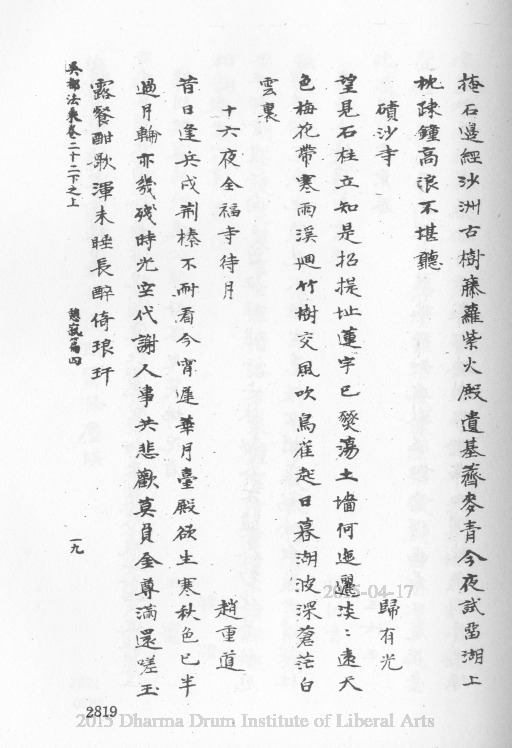 掩石邊經沙洲古樹藤蘿紫火殿遺基薺麥青今夜試留湖上
枕踈鐘高浪不堪聽
磧沙寺 歸有光
望見石柱立知是招提址蓮宇已燹蕩土墻何迤邐淡〻遠天
色梅花帶寒雨溪迴竹樹交風吹鳥雀起日暮湖波深蒼茫白
雲裏
十六夜全福寺待月 趙重道
昔日逢兵戍荆榛不耐看今宵遲華月臺殿欲生寒秋色已半
過月輪亦幾殘時光空代謝人事共悲歡莫負金尊滿還嗟玉
露餐酣歌渾未睡長醉倚琅玕
吳都法乘卷二十二下之上 憩寂篇四 一九
2819
2015-04-17
2015 Dharma Drum Institute of Liberal Arts